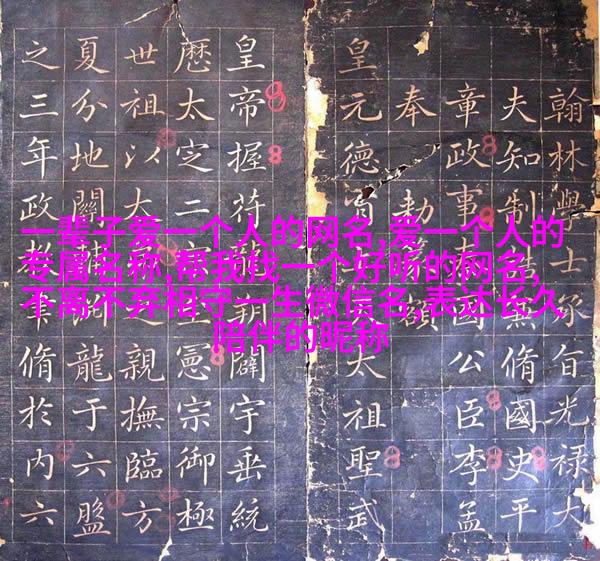 一辈子爱一个人的网名,爱一个人的
专属名称,帮我找一个好听的网名,
不离不弃相守一生微信名,表达长久
陪伴的昵称
翰林學士承旨光祿大
夫知制兼脩國史平
章政事國公臣李孟
奉勅
皇元德太祖聖武
皇帝握符闢宇垂統
曆太定二憲宗御極
世祖以大親撫臨方
夏分地關龍于六盤
之三年政教脩於內六